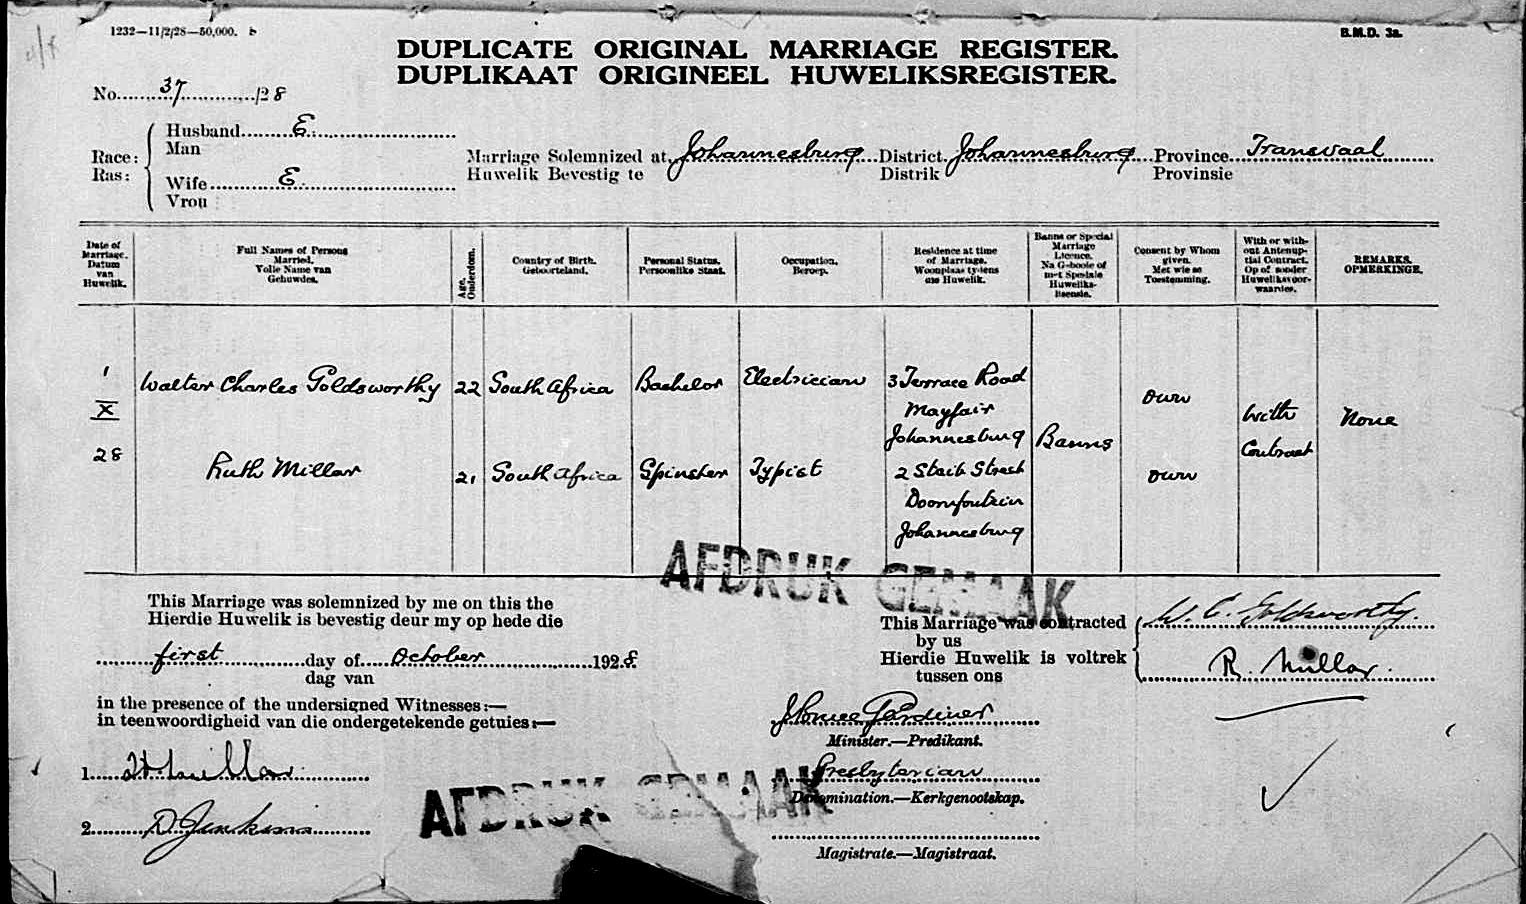 1232—11/2/28—50,000. B.M.D. 3a.
DUPLICATE ORIGINAL MARRIAGE REGISTER.
DUPLIKAAT ORIGINEEL HUWELIKSREGISTER.
No. 37 /28
Race: Husband E.
Ras: Man
Wife E.
Vrou
Marriage Solemnized at Johannesburg District Johannesburg Province Transvaal
Huwelik Bevestig te Distrik Provinsie
Date of Marriage. Datum van Huwelik.
Full Names of Persons Married. Volle Name van Gehuwdes.
Age. Ouderdom.
Country of Birth. Geboorteland.
Personal Status. Persoonlike Staat.
Occupation. Beroep.
Residence at time of Marriage. Woonplaas tydens die Huwelik.
Banns or Special Marriage Licence. Na Geboole of met Spesiale Huweliks-lisensie.
Consent by Whom given. Met wie se Toestemming.
With or without Antenuptial Contract. Op of sonder Huweliksvoorwaardes.
REMARKS. OPMERKINGE.
1
X
28
Walter Charles Goldsworthy 22 South Africa Bachelor Electrician 3 Terrace Road
Mayfair
Johannesburg
own
Ruth Millar 21 South Africa Spinster Typist 2 Staib Street
Doornfontein
Johannesburg
own
Banns
With
Contract
None
AFDRUK GEMAAK
This Marriage was solemnized by me on this the
Hierdie Huwelik is bevestig deur my op hede die
first day of October 1928
dag van
in the presence of the undersigned Witnesses:—
in teenwoordigheid van die ondergetekende getuies:—
1. Millar
2. D Jenkins
This Marriage was contracted
by us
Hierdie Huwelik is voltrek
tussen ons
W. C. Goldsworthy.
R. Millar.
Gardiner
Minister.—Predikant.
Presbyterian
Denomination.—Kerkgenootskap.
Magistrate.—Magistraat.
AFDRUK GEMAAK